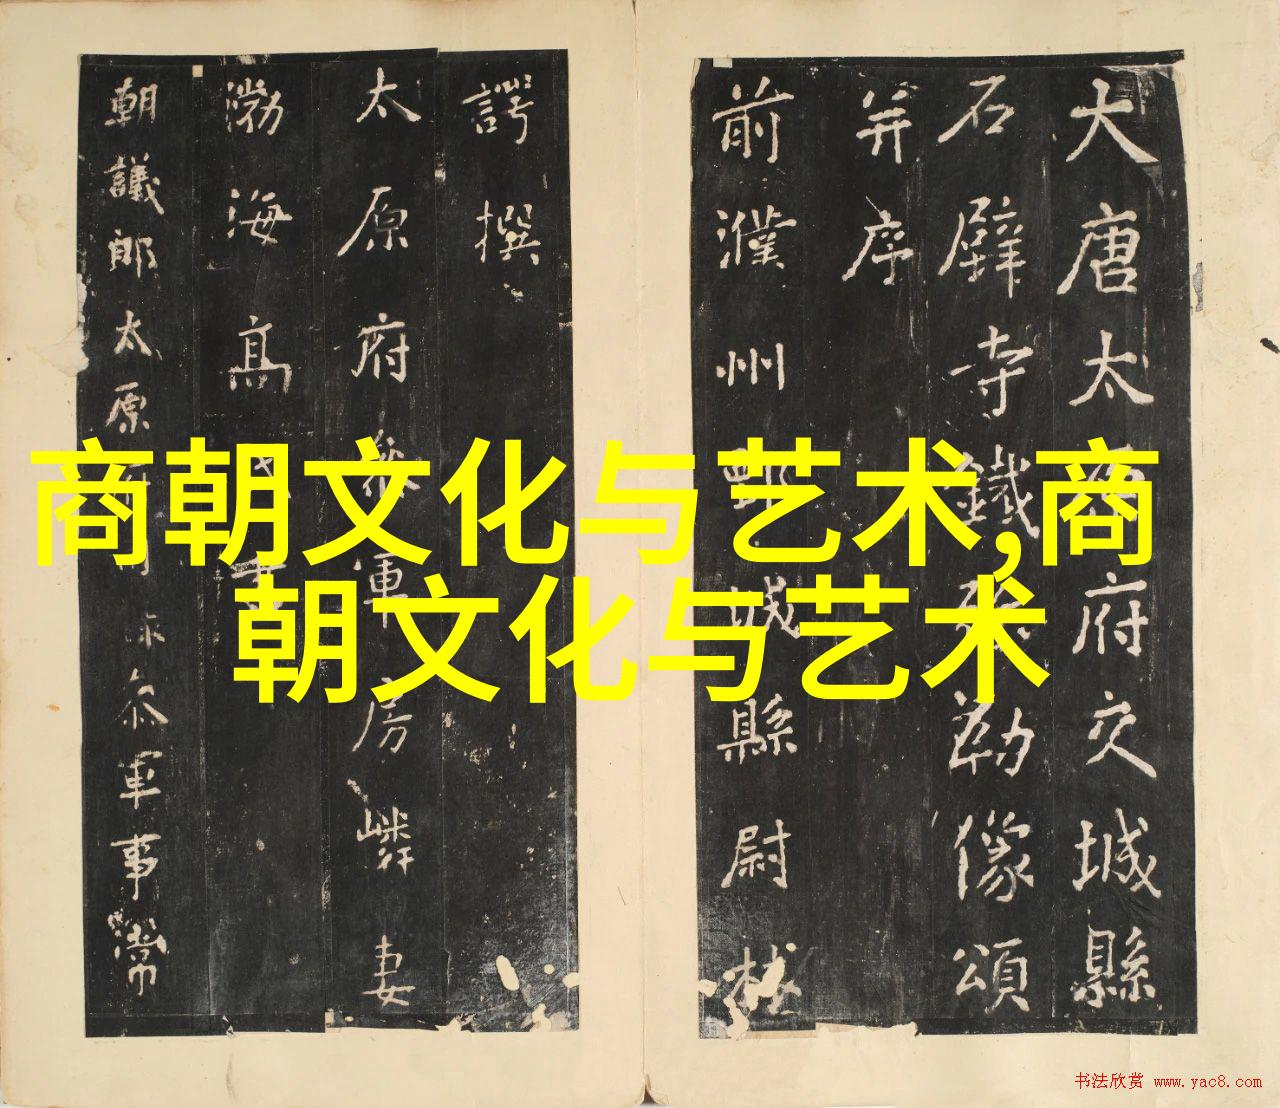 商朝文化与艺术,商
朝文化与艺术
大唐太府交城縣
石壁寺鐵勒像頌
并序
前濮州城縣尉林
諤撰
太原府參軍房嶙妻
渤海高
朝議郎太原叅軍事常
书法欣赏 www.yac8.com